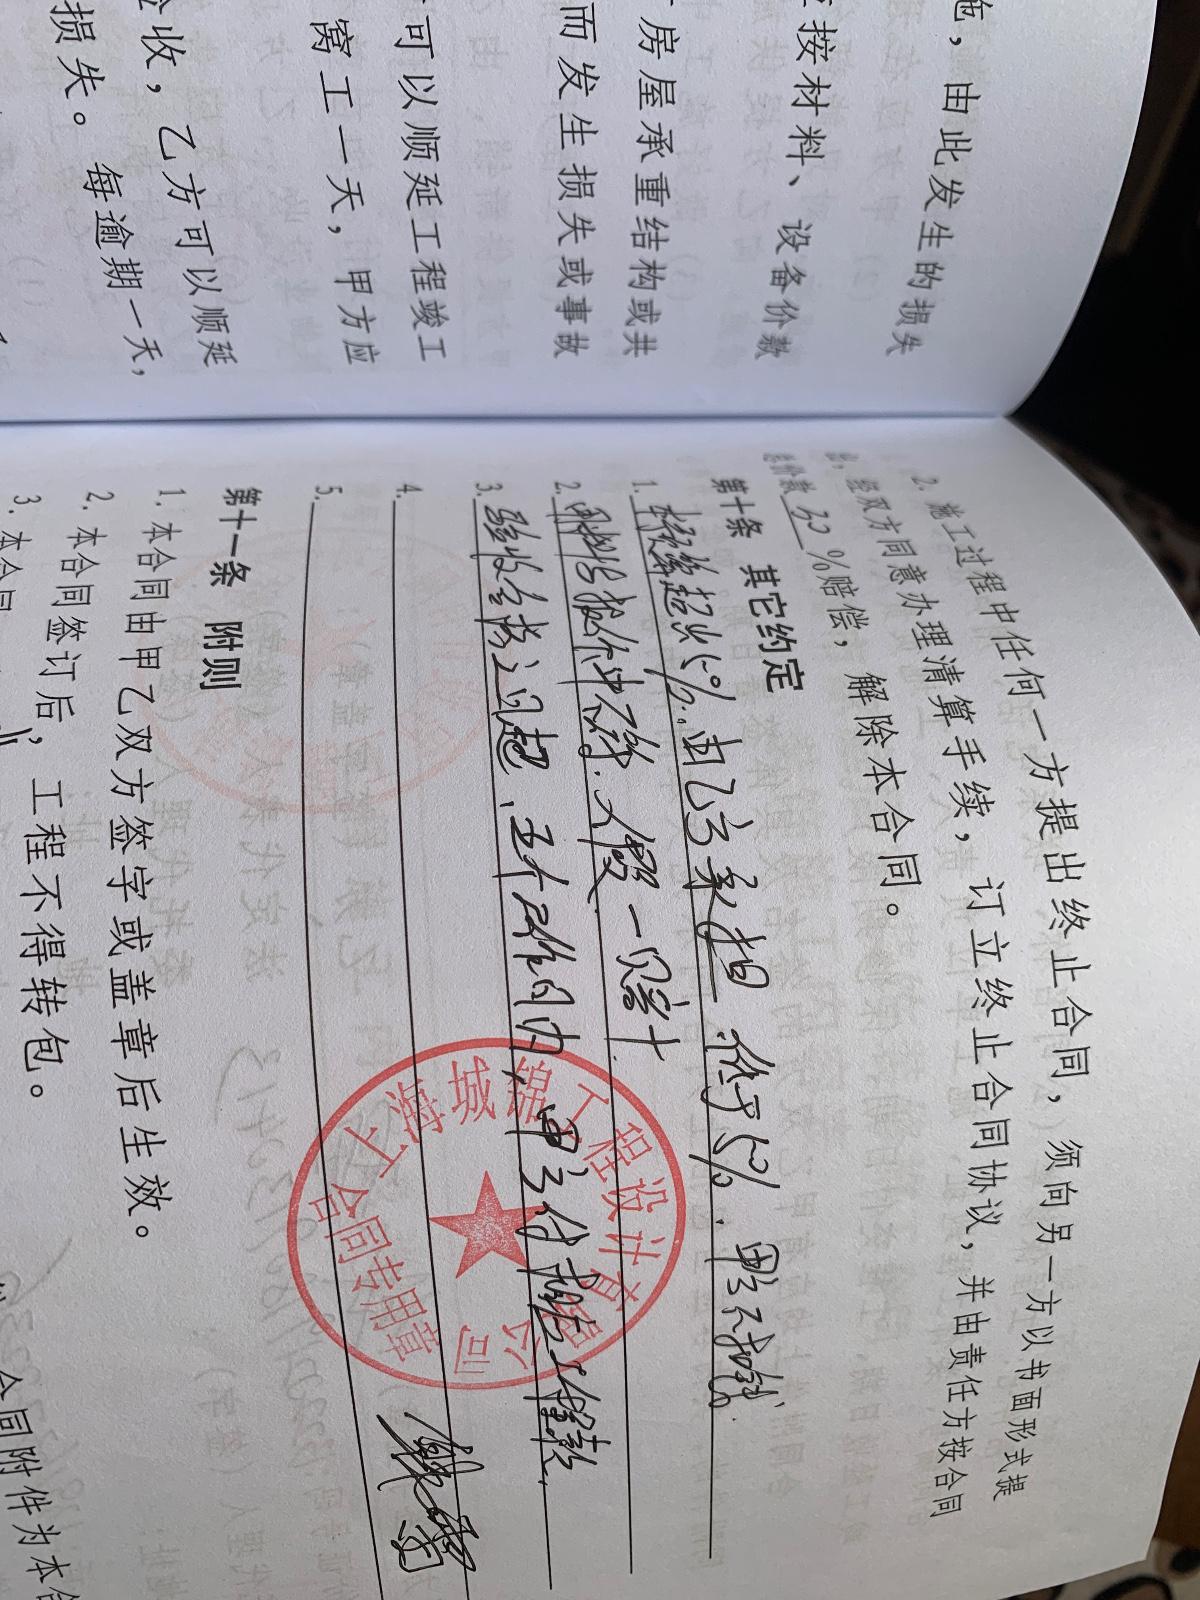 施，由此发生的损失
按材料、设备价款
房屋承重结构或共
而发生损失或事故
可以顺延工程竣工
窝工一天，甲方应
收，乙方可以顺延
损失。每逾期一天，
2. 施工过程中任何一方提出终止合同，须向另一方以书面形式提
出，经双方同意办理清算手续，订立终止合同协议，并由责任方按合同
总价款 %赔偿，解除本合同。
第十条 其它约定
1. 超出5%，由乙方承担 低于5%，甲方不找钱。
2. 报价 假一赔十
3. 验收合格之问题，五个工作日内，甲方付相应工程款
4.
5.
上海城锦工程设计有限公司
合同专用章
第十一条 附则
1. 本合同由甲乙双方签字或盖章后生效。
2. 本合同签订后，工程不得转包。
3. 本合同
合同附件为本合